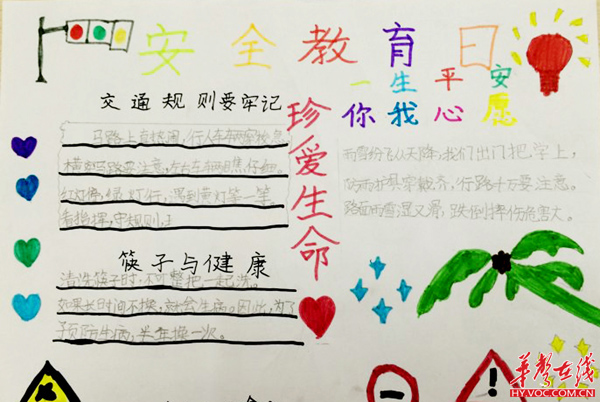 安全教育日
一生平安
你我心愿
交通规则要牢记
马路上真热闹,行人车辆穿梭急
横穿马路要注意,左右车辆瞧仔细。
红灯停,绿灯行,遇到黄灯等一等。
看指挥,守规则,
珍爱生命
雨雪纷飞从天降,我们出门把学上,
行路千万要注意。
路面雨雪湿又滑,跌倒摔伤危害大。
筷子与健康
清洗筷子时,不可整把一起洗。
如果长时间不换,就会生病。因此,为了
预防生病,半年换一次。
华声在线
HYVOC.COM.CN